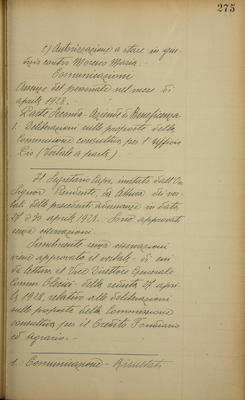 275
c) Autorizzazione a stare in giu-
dizio contro Moreno Maria.
Comunicazioni
Assenze del personale nel mese di
aprile 1928.
Parte Seconda - Azienda di Beneficenza
1. Deliberazioni sulle proposte della
Commissione consultiva per l'Ufficio
Pio (Verbale a parte)
Il Segretario Capo, invitato dall'On.
Signor Presidente, dà lettura dei ver-
bali delle precedenti adunanze in data
27 e 30 aprile 1928. Sono approvati
senza osservazioni.
Similmente senza osservazioni
viene approvato il verbale di cui
dà lettura il Vice Direttore Generale
Comm. della seduta 27 apri-
le 1928, relativo alle deliberazioni
sulle proposte della Commissione
consultiva per il Credito Fondiario
ed Agrario.
1. Comunicazione - Risultati